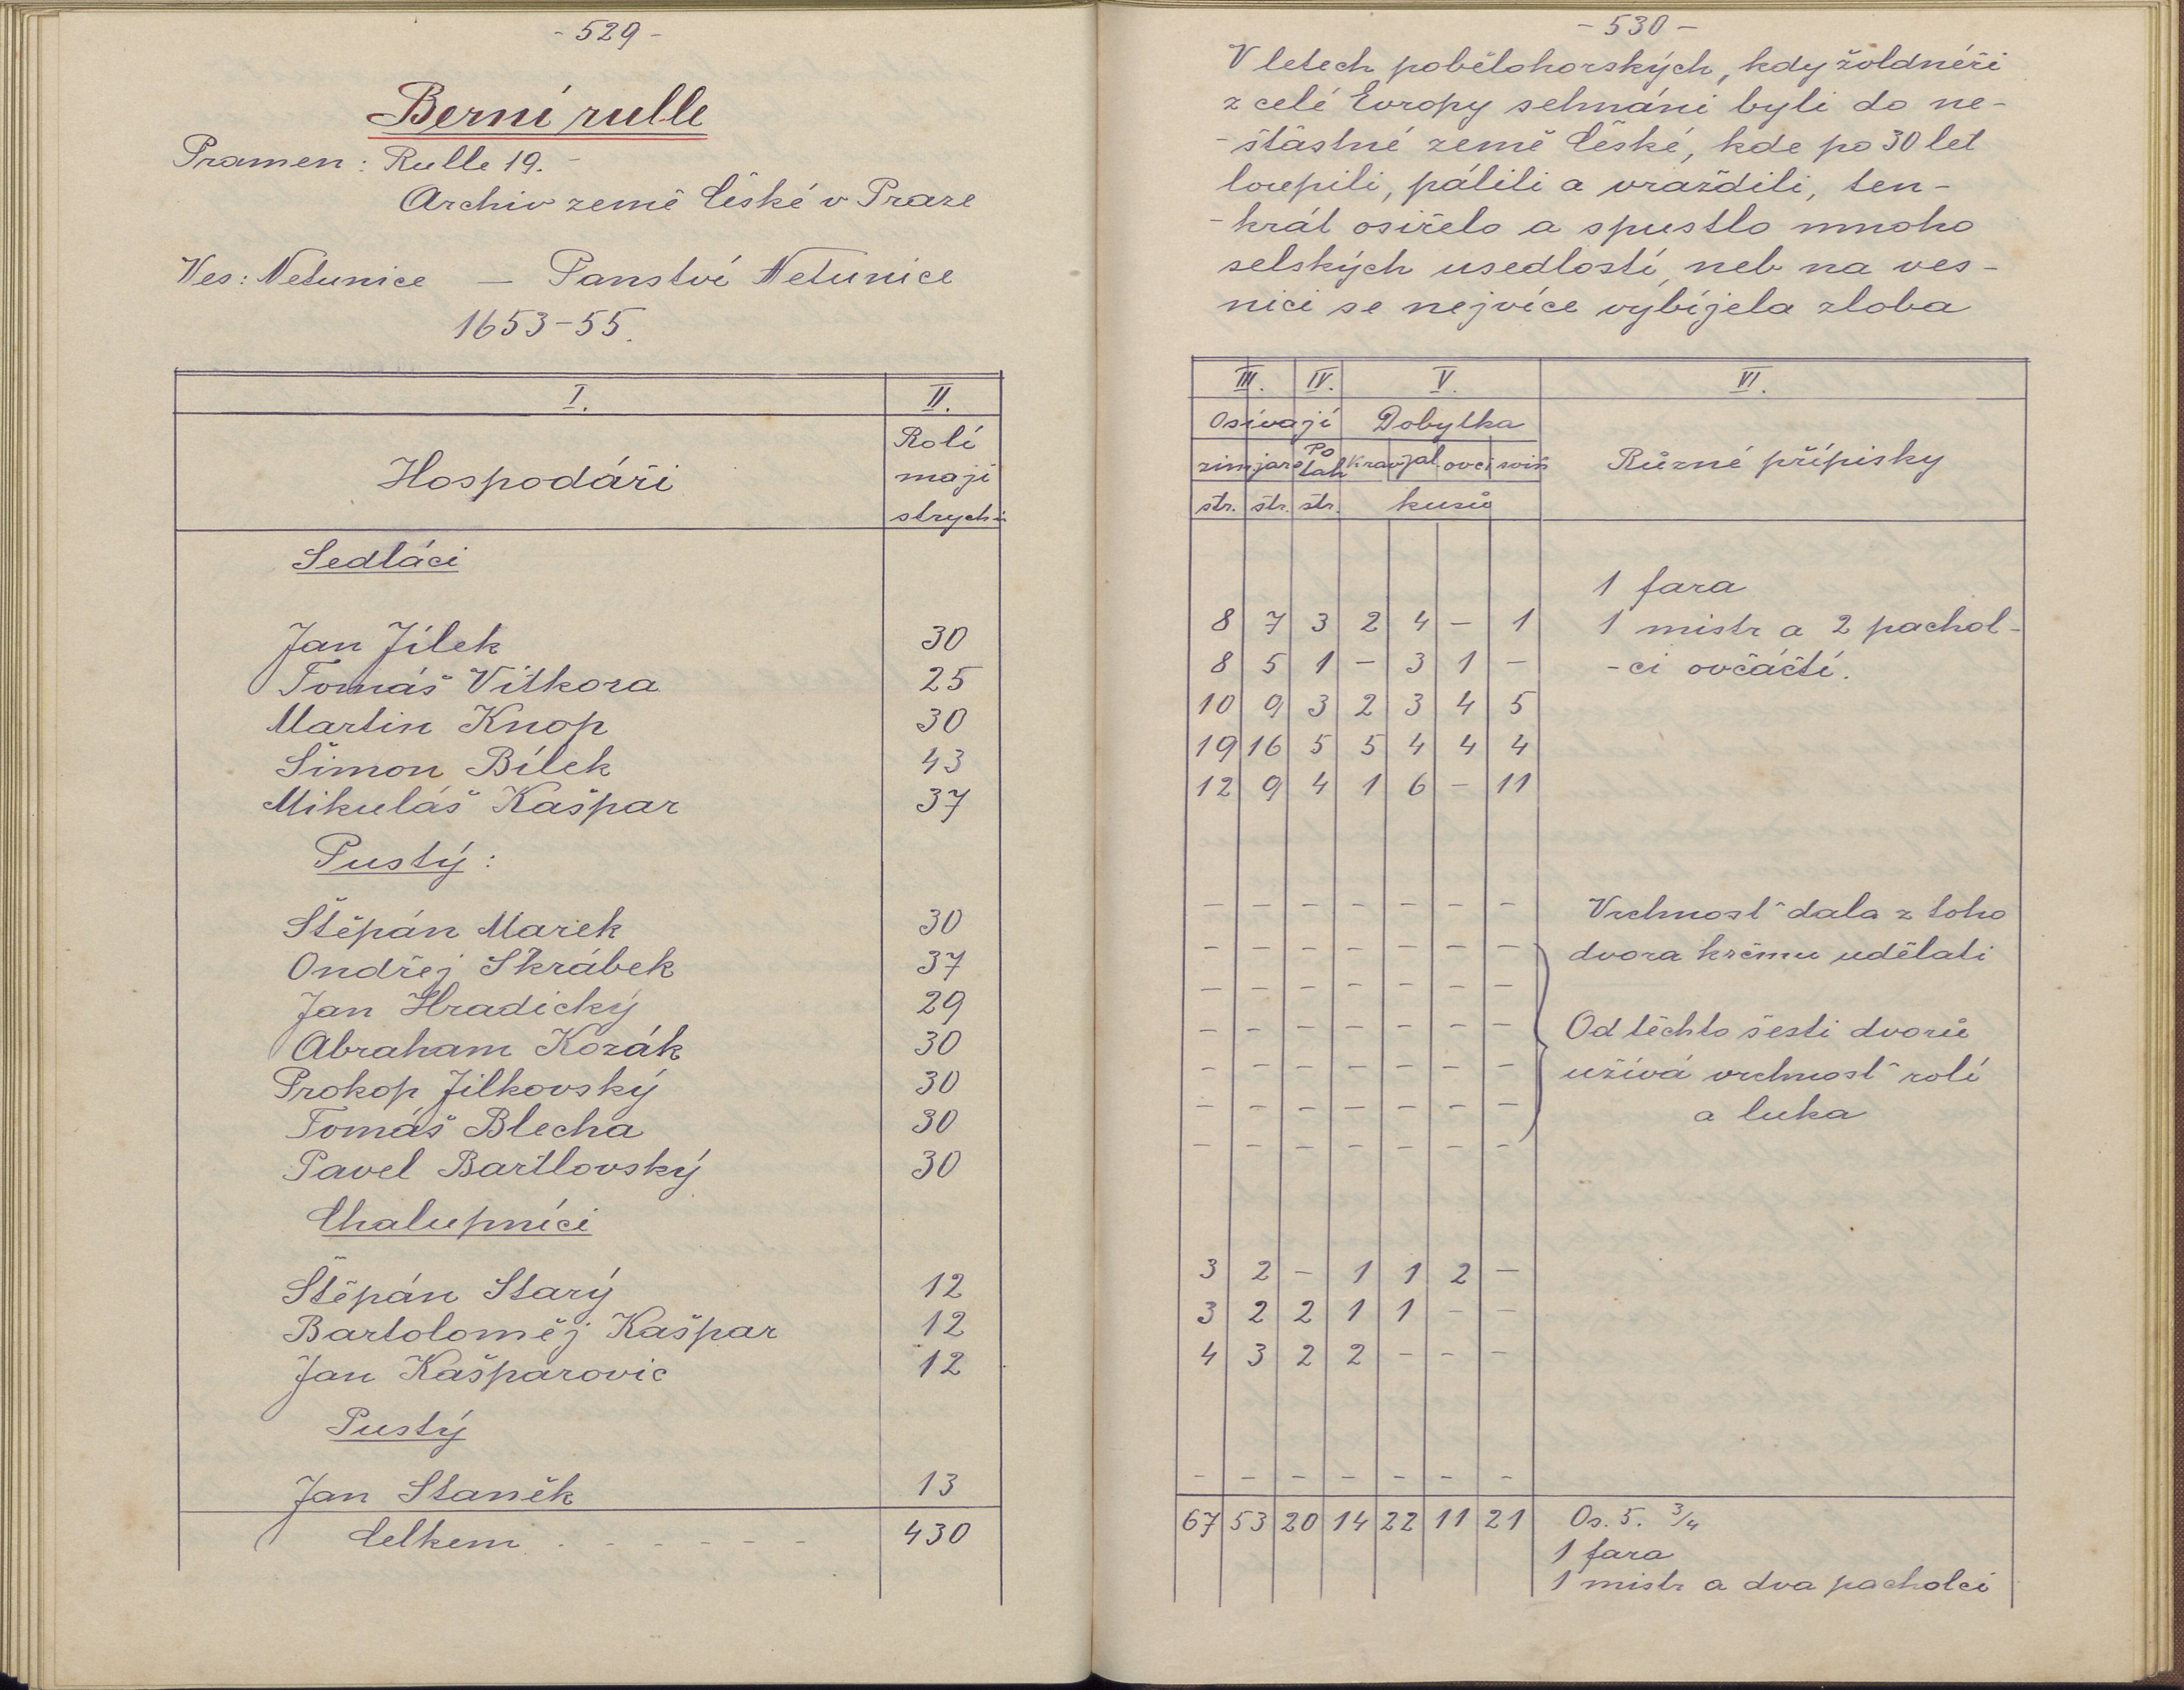 - 529 -
Berní rulle
Pramen: Rulle 19. -
Archiv země České v Praze
Ves: Netunice — Panství Netunice
1653-55.
I. II.
Hospodáři
Rolí
mají
strychů
Sedláci
Jan Jílek 30
Tomáš Vítkora 25
Martin Knop 30
Šimon Bílek 43
Mikuláš Kašpar 37
Pustý:
Štěpán Marek 30
Ondřej Škrábek 37
Jan Hradický 29
Abraham Kozák 30
Prokop Jílkovský 30
Tomáš Blecha 30
Pavel Bartlovský 30
Chalupníci
Štěpán Starý 12
Bartoloměj Kašpar 12
Jan Kašparovic 12
Pustý
Jan Staněk 13
Celkem . - - - - - - 430
- 530 -
V letech pobělohorských, kdy žoldnéři
z celé Evropy sehnáni byli do ne-
-šťastné země České, kde po 30 let
loupili, pálili a vraždili, ten-
-krát osiřelo a spustlo mnoho
selských usedlostí, neb na ves-
nici se nejvíce vybíjela zloba
III. IV. V. VI.
Osívají Dobytka
zim jaro Po tah Krav jal. ovcí sviň Různé přípisky
str. str. str. kusů
1 fara
8 7 3 2 4 — 1 1 mistr a 2 pachol-
8 5 1 — 3 1 — -ci ovčáčtí.
10 9 3 2 3 4 5
19 16 5 5 4 4 4
12 9 4 1 6 — 11
— — — — — — — Vrchnosť dala z toho
— — — — — — — dvora krčmu udělati
— — — — — — —
— — — — — — — Od těchto šesti dvorů
— — — — — — — užívá vrchnosť rolí
— — — — — — — a luka
— — — — — — —
3 2 — 1 1 2 —
3 2 2 1 1 — —
4 3 2 2 — — —
— — — — — — —
67 53 20 14 22 11 21 Os. 5. 3/4
1 fara
1 mistr a dva pacholci